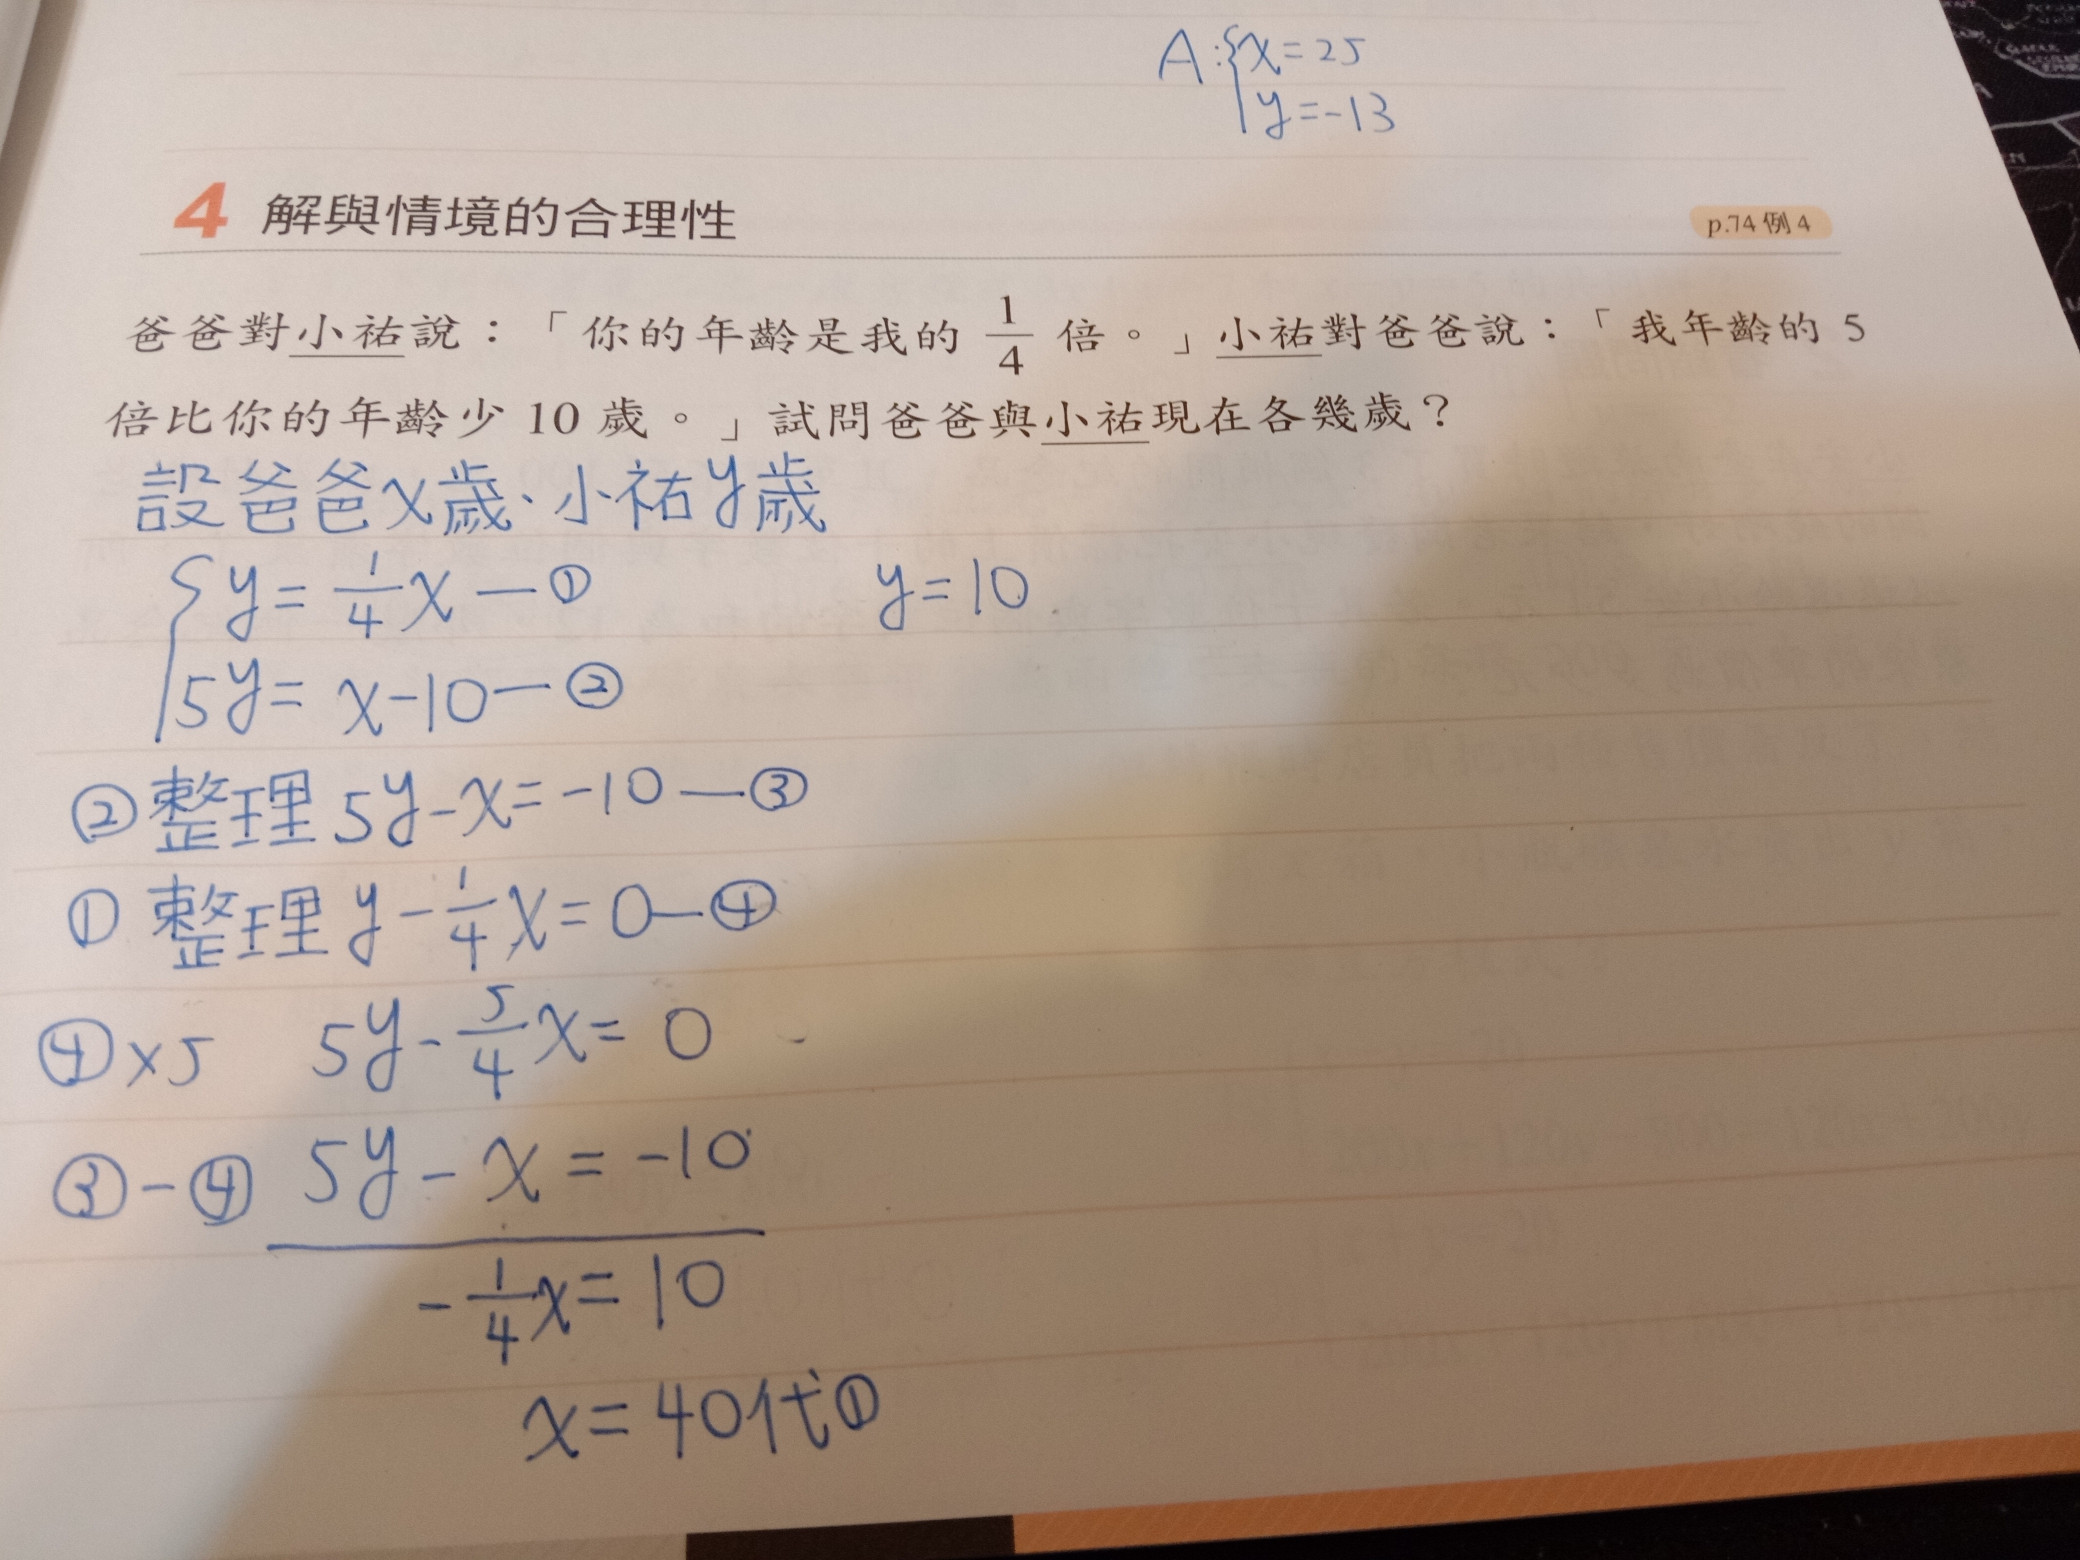 A:{x=25
y=-13
4 解與情境的合理性
p.74 例 4
爸爸對小祐說：「你的年齡是我的 1/4 倍。」小祐對爸爸說：「我年齡的 5
倍比你的年齡少 10 歲。」試問爸爸與小祐現在各幾歲？
設爸爸x歲、小祐y歲
{y=1/4x—①
5y=x-10—②
y=10
②整理 5y-x=-10—③
①整理 y-1/4x=0—④
④×5 5y-5/4x=0
③-④ 5y-x=-10
-1/4x=10
x=40代①